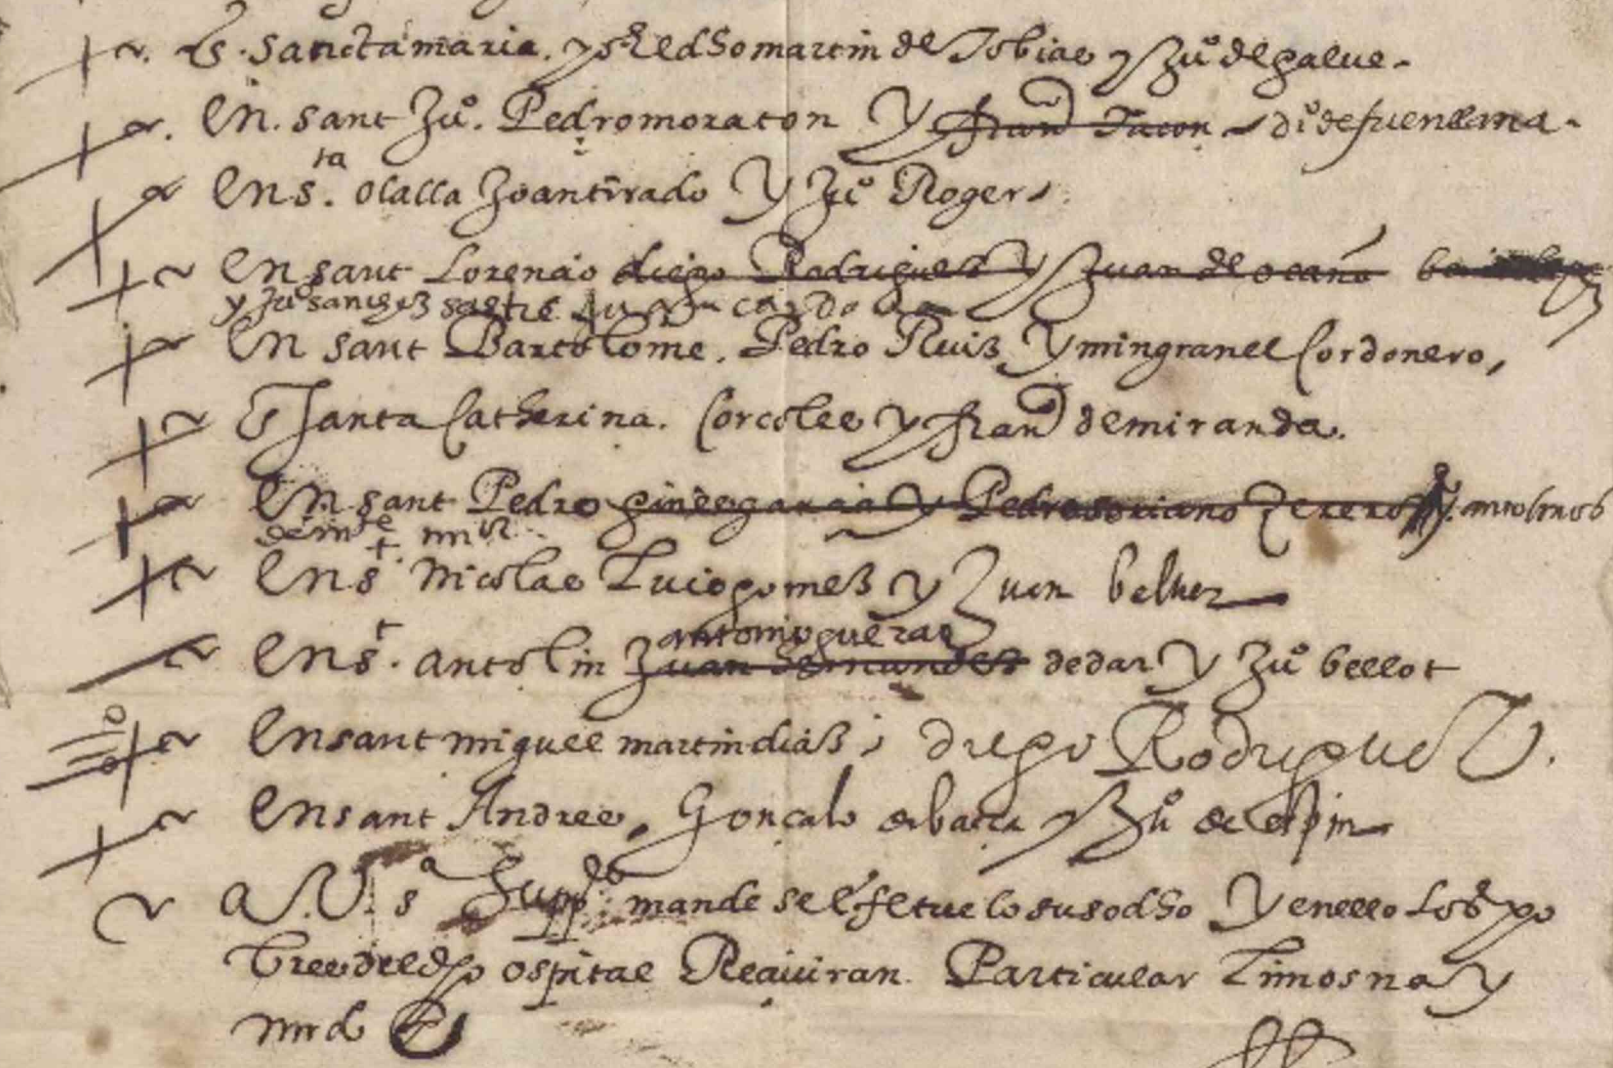 En sancta maria. y el dho martin de Tobias y Juº de galue.
En. sant Juº. Pedro moraton y franco Tacon diº de fuenllana.
En sta. olalla Joan tirado y Juº Roger
En sant Lorencio diego Rodriguez y Juan de ocaño
y Juº sanchez sastre
En sant Bartolome. Pedro Ruiz y mingranel Cordonero,
En santa Catherina. Corcoles y franco de miranda.
En sant Pedro gines garcia y Pedro soriano antolinos
En st nicolas Luis gomez y Juan beluer
antonio gueras
En st. antolin Juan hernandez dedar y Juº bellot
En sant miguel martin diaz y diego Rodriguez.
En sant Andres. Gonçalo y Juº de espin
a V. sª Suppco mande se efetue lo susodho y en ello los po
bres del dho ospital Reciuiran Particular Limosna y
mrd